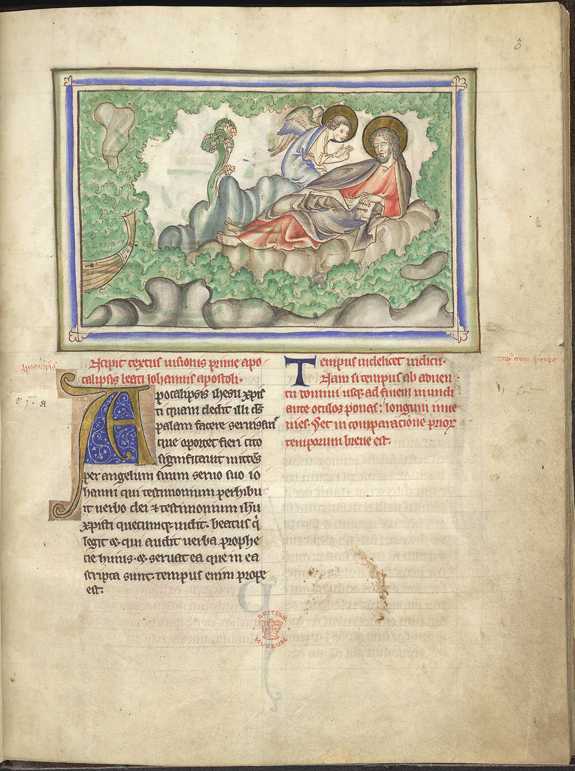 Incipit textus uisionis prime apo
calipsis beati iohannis apostoli.
Apocalipsis ihesu xpis
ti quam dedit illi ds
palam facere seruis suis
que oportet fieri cito
significauit mittens
per angelum suum seruo suo io
hanni qui testimonium perhibu
it uerbo dei & testimonium ihu
xpisti quecumque uidit. beatus q
legit & qui audit uerba prophe
tie huius. & seruat ea que in ea
scripta sunt. tempus enim prope
est.
Tempus uidelicet iudicii.
Nam si tempus ab aduen
tu domini usque ad finem mundi
ante oculos ponas. longum inue
nies. Set in comparacione prior
temporum breue est.
BRITISH
MUSEUM